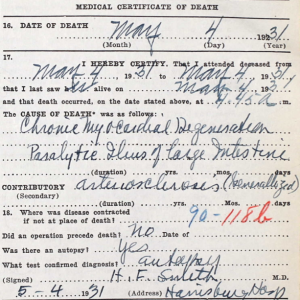 MEDICAL CERTIFICATE OF DEATH
16. DATE OF DEATH May 4 1931
(Month) (Day) (Year)
17. I HEREBY CERTIFY, That I attended deceased from
May 4 1931 to May 4 1931
that I last saw alive on May 4 1931
and that death occurred, on the date stated above, at 4.45 m.
The CAUSE OF DEATH* was as follows:
Chronic Myocardial Degeneration
Paralytic Ileus of Large Intestine
(duration) yrs. Mos. days
CONTRIBUTORY arteriosclerosis (Generalized)
(Secondary) (duration) yrs. Mos. days
18. Where was disease contracted
if not at place of death? 90-118b
Did an operation precede death? No Date
Was there an autopsy? Yes
What test confirmed diagnosis? autopsy
(Signed) H. F. Smith M.D.
5-4-1931 (Address) Harrisburg Hosp